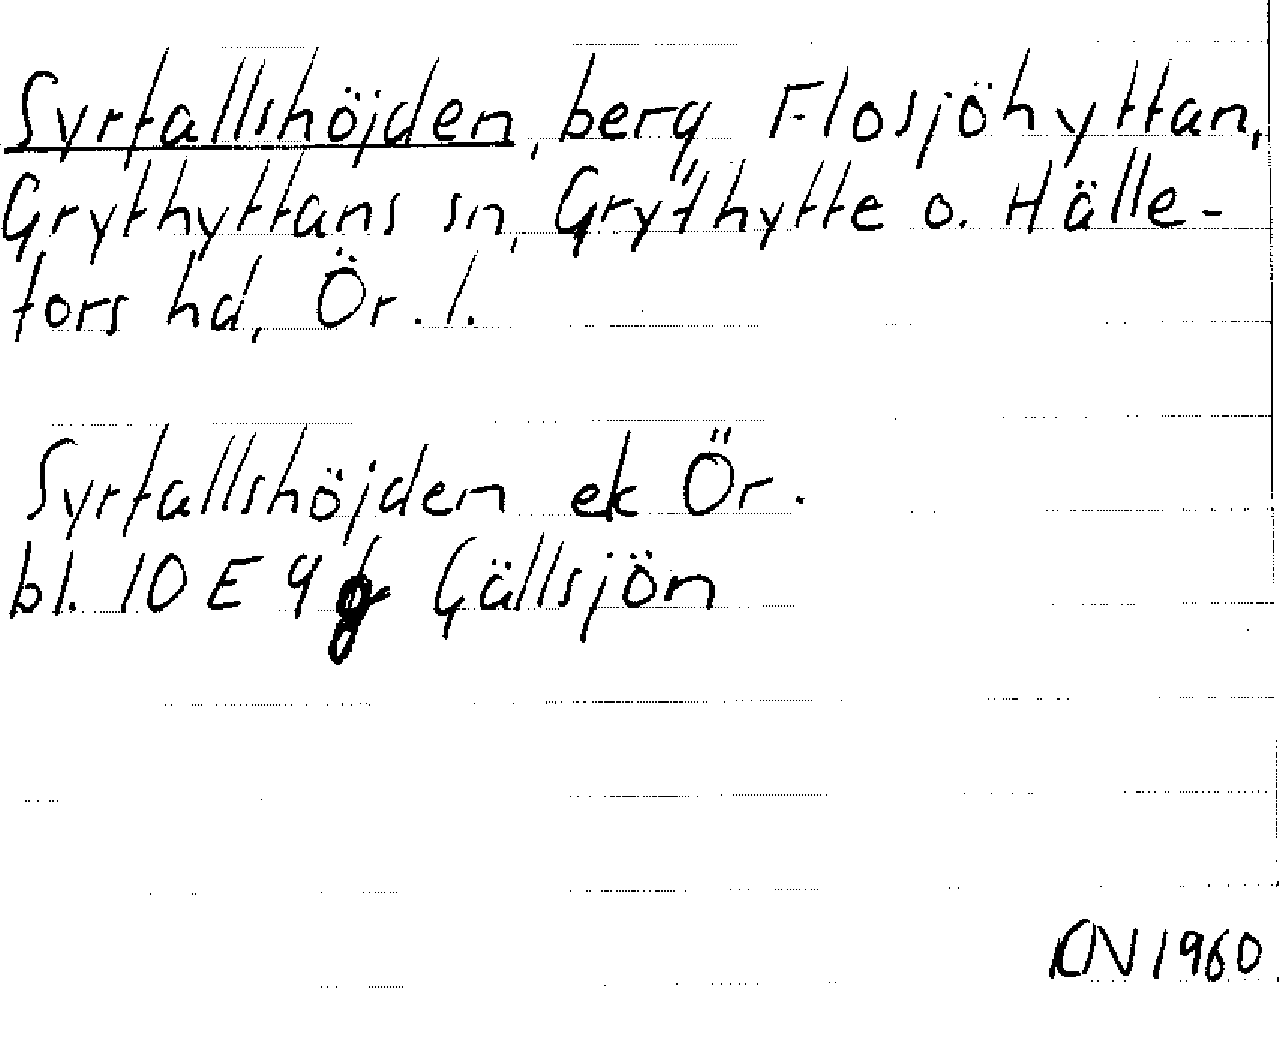 Syrfallshöjden, berg Flosjöhyttan,
Grythyttans sn, Grythytte o. Hälle-
fors hd, Ör. l.
Syrfallshöjden ek Ör.
bl. 10 E 9 g Gällsjön
CN 1960